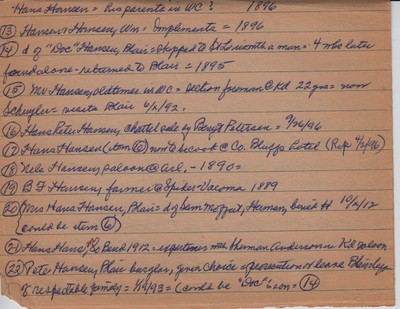 Hans Hansen = his parents in WC? 1896
(13) Hansen & Hansen, Wm = Implements = 1896
(14) d of "Doc" Hansen, Blair = skipped to with month a man = 4 mos later
found alone - returned to Blair = 1895
(15) Mr Hansen, oldtimer in WC = section foreman @ Kd 22 yrs = now
Schuyler = visits Blair 6/2/92.
(16) Hans Peter Hansen, chattel sale by Bengt Petersen = 9/26/96
(17) Hans Hansen (item (6)) now to be cook @ Co. Bluffs hotel (Rep 4/2/96)
(18) Nels Hansen, saloon @ Arl. - 1890 =
(19) B F Hansen, farmer @ Spiker - Vacoma 1889
(20) Mrs Hans Hansen, Blair = d of Sam Moffett, Herman, buried H 10/2/12
(could be item (6))
(21) Hans Hans, Kd 1912 = Herman Anderson Kd saloon
(22) Pete Hansen, Blair burglar, given choice of prosecution or leave Blair
of respectable family = 1/19/93 = (could be "Doc's" son = (14)